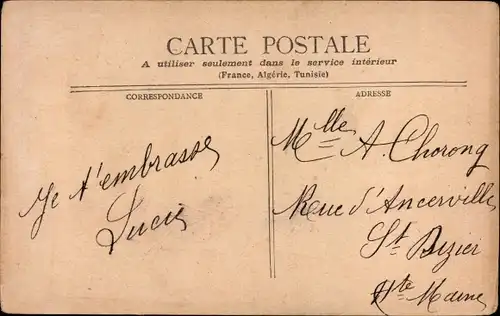 CARTE POSTALE
A utiliser seulement dans le service intérieur
(France, Algérie, Tunisie)
CORRESPONDANCE
Je t'embrasse
Lucie
ADRESSE
Mlle A. Chorong
Rue d'Ancerville
St Dizier
Hte Marne